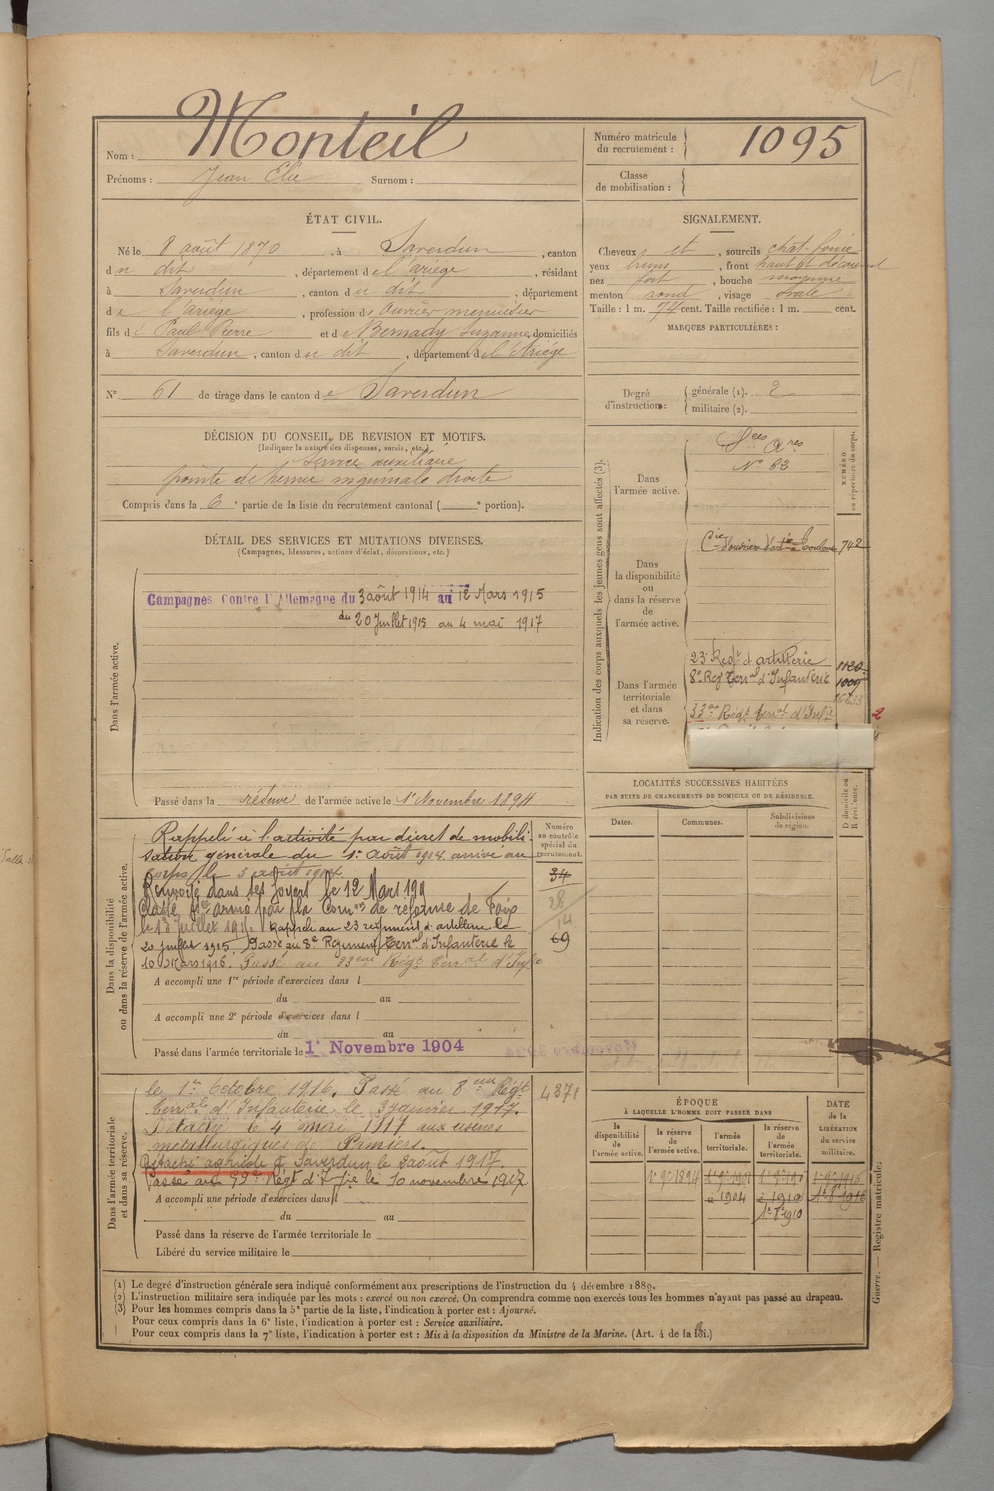 Nom : Monteil
Prénoms : Jean Elie Surnom :
Numéro matricule du recrutement : 1095
Classe de mobilisation :
ÉTAT CIVIL.
Né le 8 août 1870, à Saverdun, canton
du dit, département de l'ariège, résidant
à Saverdun, canton du dit, département
de l'ariège, profession de Ouvrier menuisier
fils de Paul Pierre et de Bernady Suzanne, domiciliés
à Saverdun, canton du dit, département de l'Ariège
N° 61 de tirage dans le canton de Saverdun
SIGNALEMENT.
Cheveux et, sourcils chat. foncé
yeux bruns, front haut et découvert
nez fort, bouche moyenne
menton rond, visage ovale
Taille : 1 m. 74 cent. Taille rectifiée : 1 m. cent.
MARQUES PARTICULIÈRES :
Degré d'instruction : générale (1). 2
militaire (2).
DÉCISION DU CONSEIL DE REVISION ET MOTIFS.
(Indiquer la nature des dispenses, sursis, etc.)
Service auxiliaire
pointe de hernie inguinale droite
Compris dans la 6e partie de la liste du recrutement cantonal ( e portion).
DÉTAIL DES SERVICES ET MUTATIONS DIVERSES.
(Campagnes, blessures, actions d'éclat, décorations, etc.)
Dans l'armée active.
Campagnes Contre l'Allemagne du 3 août 1914 au 12 Mars 1915
du 20 Juillet 1915 au 4 mai 1917
Passé dans la réserve de l'armée active le 1er Novembre 1894
Indication des corps auxquels les jeunes gens sont affectés (3).
NUMÉRO au répertoire du corps.
Dans l'armée active.
Sces Ares
N° 63
Dans la disponibilité ou dans la réserve de l'armée active.
Cie d'ouvriers d'artie 742
Dans l'armée territoriale et dans sa réserve.
23e Regt d'artillerie 1120
8e Reg Terral d'Infanterie 1009
33me Régt terral d'Infie
LOCALITÉS SUCCESSIVES HABITÉES
PAR SUITE DE CHANGEMENTS DE DOMICILE OU DE RÉSIDENCE.
Dates. Communes. Subdivisions de région. D domicile ou R résidence.
Dans la disponibilité ou dans la réserve de l'armée active.
Numéro au contrôle spécial du recrutement.
Rappelé à l'activité par décret de mobili-
sation générale du 1er août 1914 arrivé au
corps le 3 août 1914
Renvoyé dans ses foyers le 12 Mars 191
Classé sce armé par la Comon de réforme de Foix
le 13 juillet 191 Rappelé au 23 régiment d'artillerie le
20 juillet 1915. Passé au 8e Régiment terral d'Infanterie le
10 Mars 1916. Passé au 33eme Régt terral d'Infie
34
28
14
69
A accompli une 1re période d'exercices dans l
du au
A accompli une 2e période d'exercices dans l
du au
Passé dans l'armée territoriale le 1er Novembre 1904
Dans l'armée territoriale et dans sa réserve.
le 1er Octobre 1916. Passé au 8eme Régt
terral d'Infanterie le 3 janvier 1917.
Détaché le 4 mai 1917 aux usines
métallurgiques de Pamiers.
Détaché agricole à Saverdun le 3 août 1917.
Passé au Régt d'Infie le 10 novembre 1917
4371
A accompli une période d'exercices dans l
du au
Passé dans la réserve de l'armée territoriale le
Libéré du service militaire le
ÉPOQUE
À LAQUELLE L'HOMME DOIT PASSER DANS
la disponibilité de l'armée active. la réserve de l'armée active. l'armée territoriale. la réserve de l'armée territoriale.
DATE de la LIBÉRATION du service militaire.
1904 1910
1er 8 1910
Guerre. — Registre matricule.
(1) Le degré d'instruction générale sera indiqué conformément aux prescriptions de l'instruction du 4 décembre 1889.
(2) L'instruction militaire sera indiquée par les mots : exercé ou non exercé. On comprendra comme non exercés tous les hommes n'ayant pas passé au drapeau.
(3) Pour les hommes compris dans la 5e partie de la liste, l'indication à porter est : Ajourné.
Pour ceux compris dans la 6e liste, l'indication à porter est : Service auxiliaire.
Pour ceux compris dans la 7e liste, l'indication à porter est : Mis à la disposition du Ministre de la Marine. (Art. 4 de la loi.)